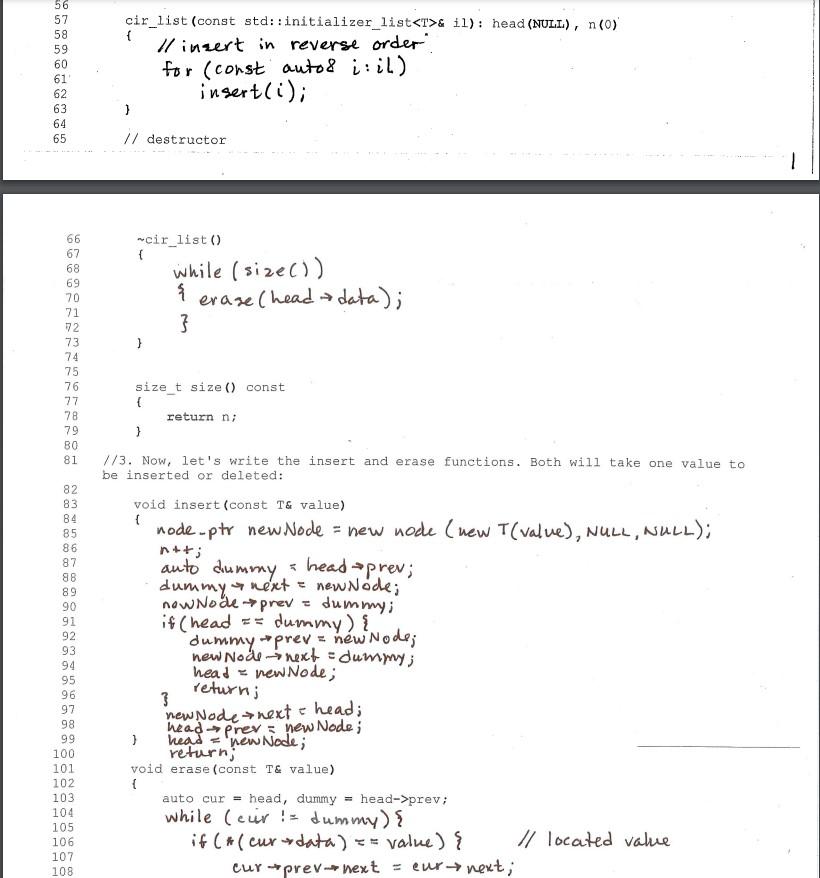 56
57 cir_list(const std::initializer_list<T>& il): head(NULL), n(0)
58 {
59 // insert in reverse order
60 for (const auto& i:il)
61
62 insert(i);
63 }
64
65 // destructor
1
66 ~cir_list()
67 {
68 while (size())
69
70 { erase(head→data);
71
72 }
73 }
74
75
76 size_t size() const
77 {
78 return n;
79 }
80
81 //3. Now, let's write the insert and erase functions. Both will take one value to
be inserted or deleted:
82
83 void insert(const T& value)
84 {
85 node_ptr newNode = new node (new T(value), NULL, NULL);
86 n++;
87 auto dummy = head→prev;
88 dummy→next = newNode;
89
90 newNode→prev = dummy;
91 if(head == dummy) {
92 dummy→prev = newNode;
93 newNode→next = dummy;
94 head = newNode;
95 return;
96 }
97 newNode→next = head;
98 head→prev = newNode;
99 } head = newNode;
100 return;
101 void erase(const T& value)
102 {
103 auto cur = head, dummy = head->prev;
104 while (cur != dummy) {
105
106 if (*(cur→data) == value) { // located value
107
108 cur→prev→next = cur→next;